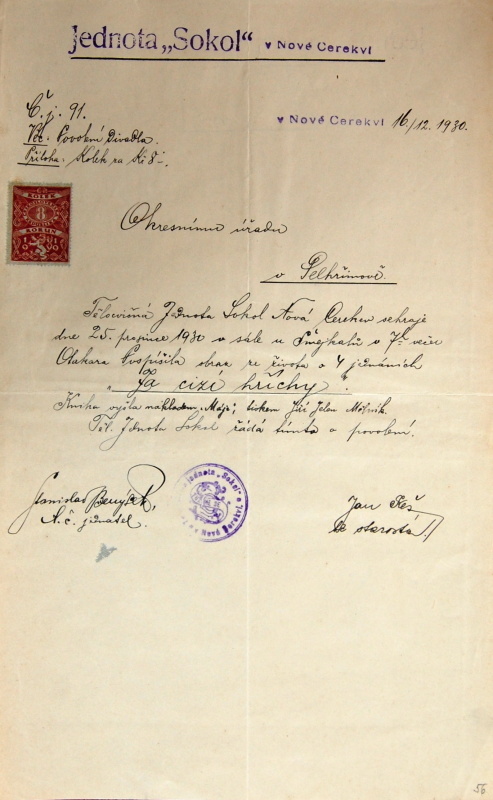 Jednota „Sokol“ v Nové Cerekvi
v Nové Cerekvi 16/12. 1930.
Č. j. 91.
Věc: Povolení Divadla.
Příloha: Kolek za Kč 8-.
KOLEK
8
KORUN
Okresnímu úřadu
v Pelhřimově.
Tělocvičná Jednota Sokol Nová Cerekev sehraje
dne 25. prosince 1930 v sále u Šmejkalů v 7h večer
Otakara Pospíšila obraz ze života o 4 jednáních
„Za cizí hříchy“.
Kniha vyšla nákladem „Máje“, tiskem Jiří Jelen Mělník.
Těl. Jednota Sokol žádá tímto o povolení.
Stanislav
t. č. jednatel.
jednota „Sokol“ v Nové Cerekvi
Jan
tč starosta
56